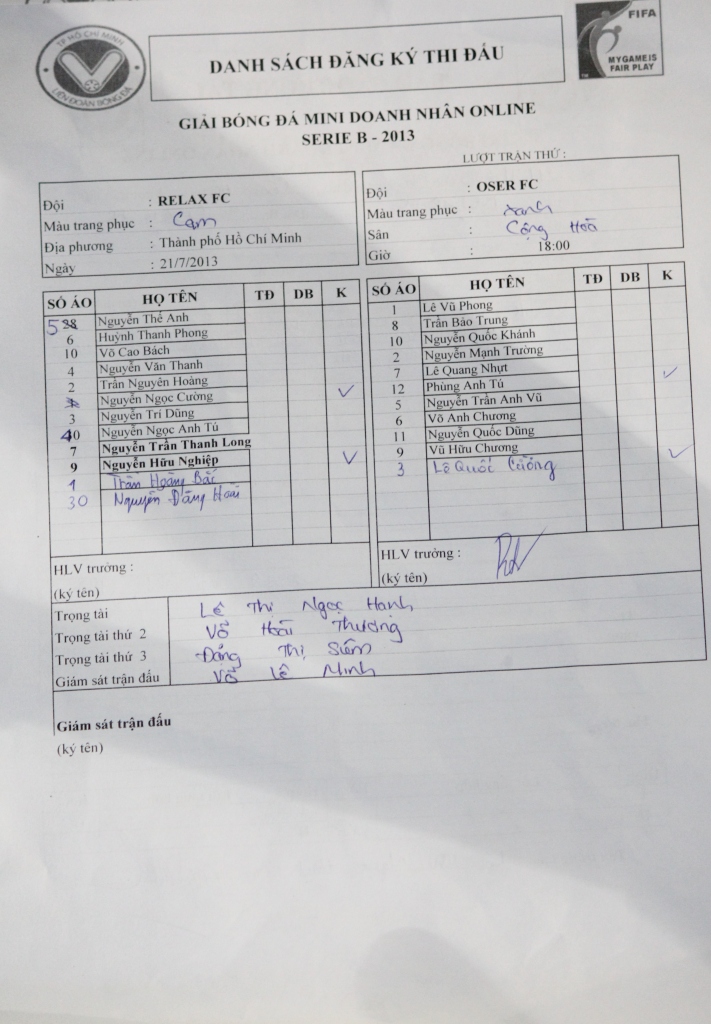 TP HỒ CHÍ MINH
LIÊN ĐOÀN BÓNG ĐÁ
DANH SÁCH ĐĂNG KÝ THI ĐẤU
FIFA
MY GAME IS
FAIR PLAY
GIẢI BÓNG ĐÁ MINI DOANH NHÂN ONLINE
SERIE B - 2013
LƯỢT TRẬN THỨ :
Đội : RELAX FC
Màu trang phục : Cam
Địa phương : Thành phố Hồ Chí Minh
Ngày : 21/7/2013
Đội : OSER FC
Màu trang phục : xanh
Sân : Cộng Hoà
Giờ : 18:00
SỐ ÁO HỌ TÊN TĐ DB K
5 Nguyễn Thế Anh
6 Huỳnh Thanh Phong
10 Võ Cao Bách
4 Nguyễn Văn Thanh
2 Trần Nguyên Hoàng
Nguyễn Ngọc Cường ✓
3 Nguyễn Trí Dũng
Nguyễn Ngọc Anh Tú
7 Nguyễn Trần Thanh Long
9 Nguyễn Hữu Nghiệp ✓
1 Trần Hoàng Bắc
30 Nguyễn Đăng Hoài
SỐ ÁO HỌ TÊN TĐ DB K
1 Lê Vũ Phong
8 Trần Bảo Trung
10 Nguyễn Quốc Khánh
2 Nguyễn Mạnh Trường
7 Lê Quang Nhựt ✓
12 Phùng Anh Tú
5 Nguyễn Trần Anh Vũ
6 Võ Anh Chương
11 Nguyễn Quốc Dũng
9 Vũ Hữu Chương ✓
3 Lê Quốc Cường
HLV trưởng :
(ký tên)
HLV trưởng :
(ký tên)
Trọng tài Lê Thi Ngọc Hạnh
Trọng tài thứ 2 Võ Hoài Thương
Trọng tài thứ 3 Đặng Thị Siêm
Giám sát trận đấu Võ Lê Minh
Giám sát trận đấu
(ký tên)